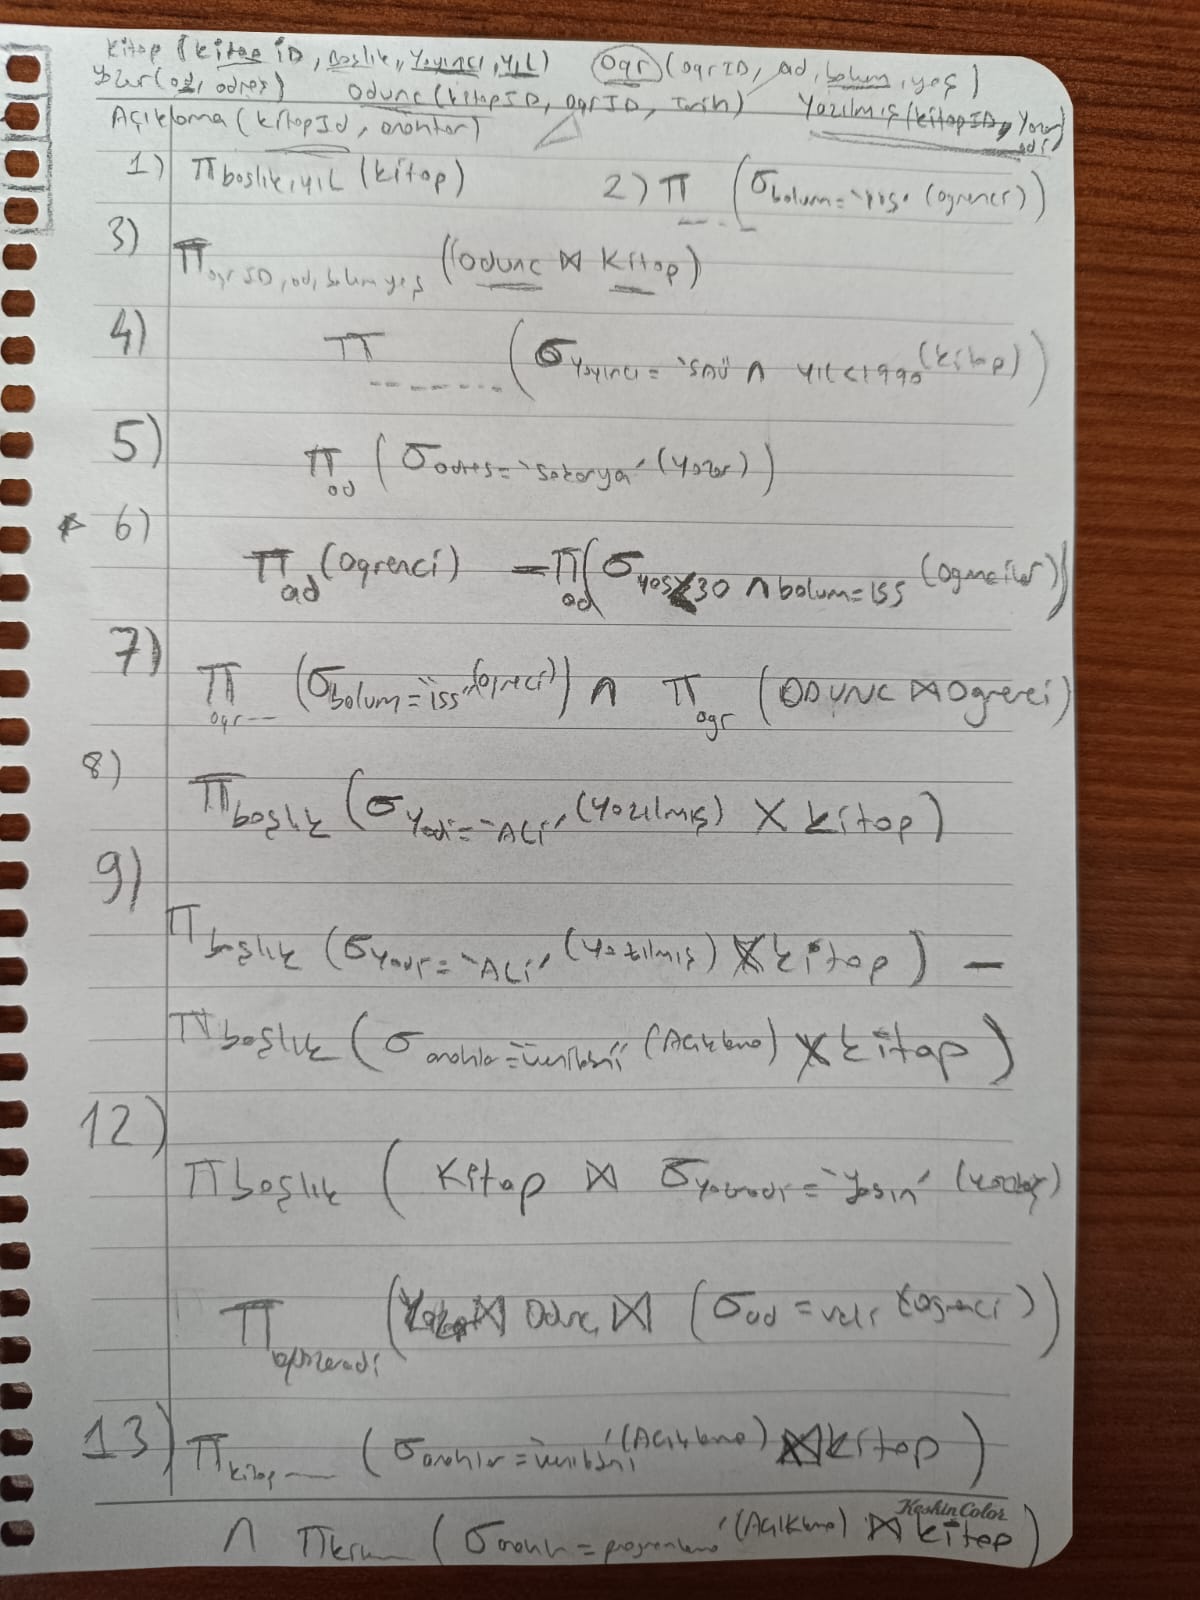 Kitap (kitap iD, Başlık, Yayıncı, YıL) Ogr (ogrID, ad, bolum, yaş)
Yazar(ad, adres) Odunc(kitapID, ogrID, Tarih) Yazılmış(kitapID, Yazar
adı)
Açıklama (kitapId, anahtar)
1) π başlık, yıL (kitap) 2) π (σ bolum= (ogrenci))
3) π ogrID, ad, bolum yaş ((odunc ⋈ Kitap)
4) π (σ Yayıncı = 'SAÜ' ∧ YIL<1990 (kitap))
5) π ad (σ adres= 'Sakarya' (Yazar))
6) π ad (Ogrenci) — π ad (σ yas<30 ∧ bolum=iss (ogrenciler))
7) π ogr--- (σ bolum="iss" (ogreci)) ∩ π ogr (ODUNC ⋈ Ogrenci)
8) π başlık (σ Yadı= 'ALi' (Yazılmış) X kitap)
9)
π başlık (σ Yadı= 'ALi' (Yazılmış) X kitap) —
π başlık (σ (Açıklama) X kitap)
12)
π başlık ( Kitap ⋈ σ Yazaradı= 'Yasin'
π ( ⋈ Odunc ⋈ (σ ad = veli (ogrenci))
13) π kitap (σ (Açıklama) ⋈ kitap)
KeskinColor
∩ π (σ (Açıklama) ⋈ kitap)